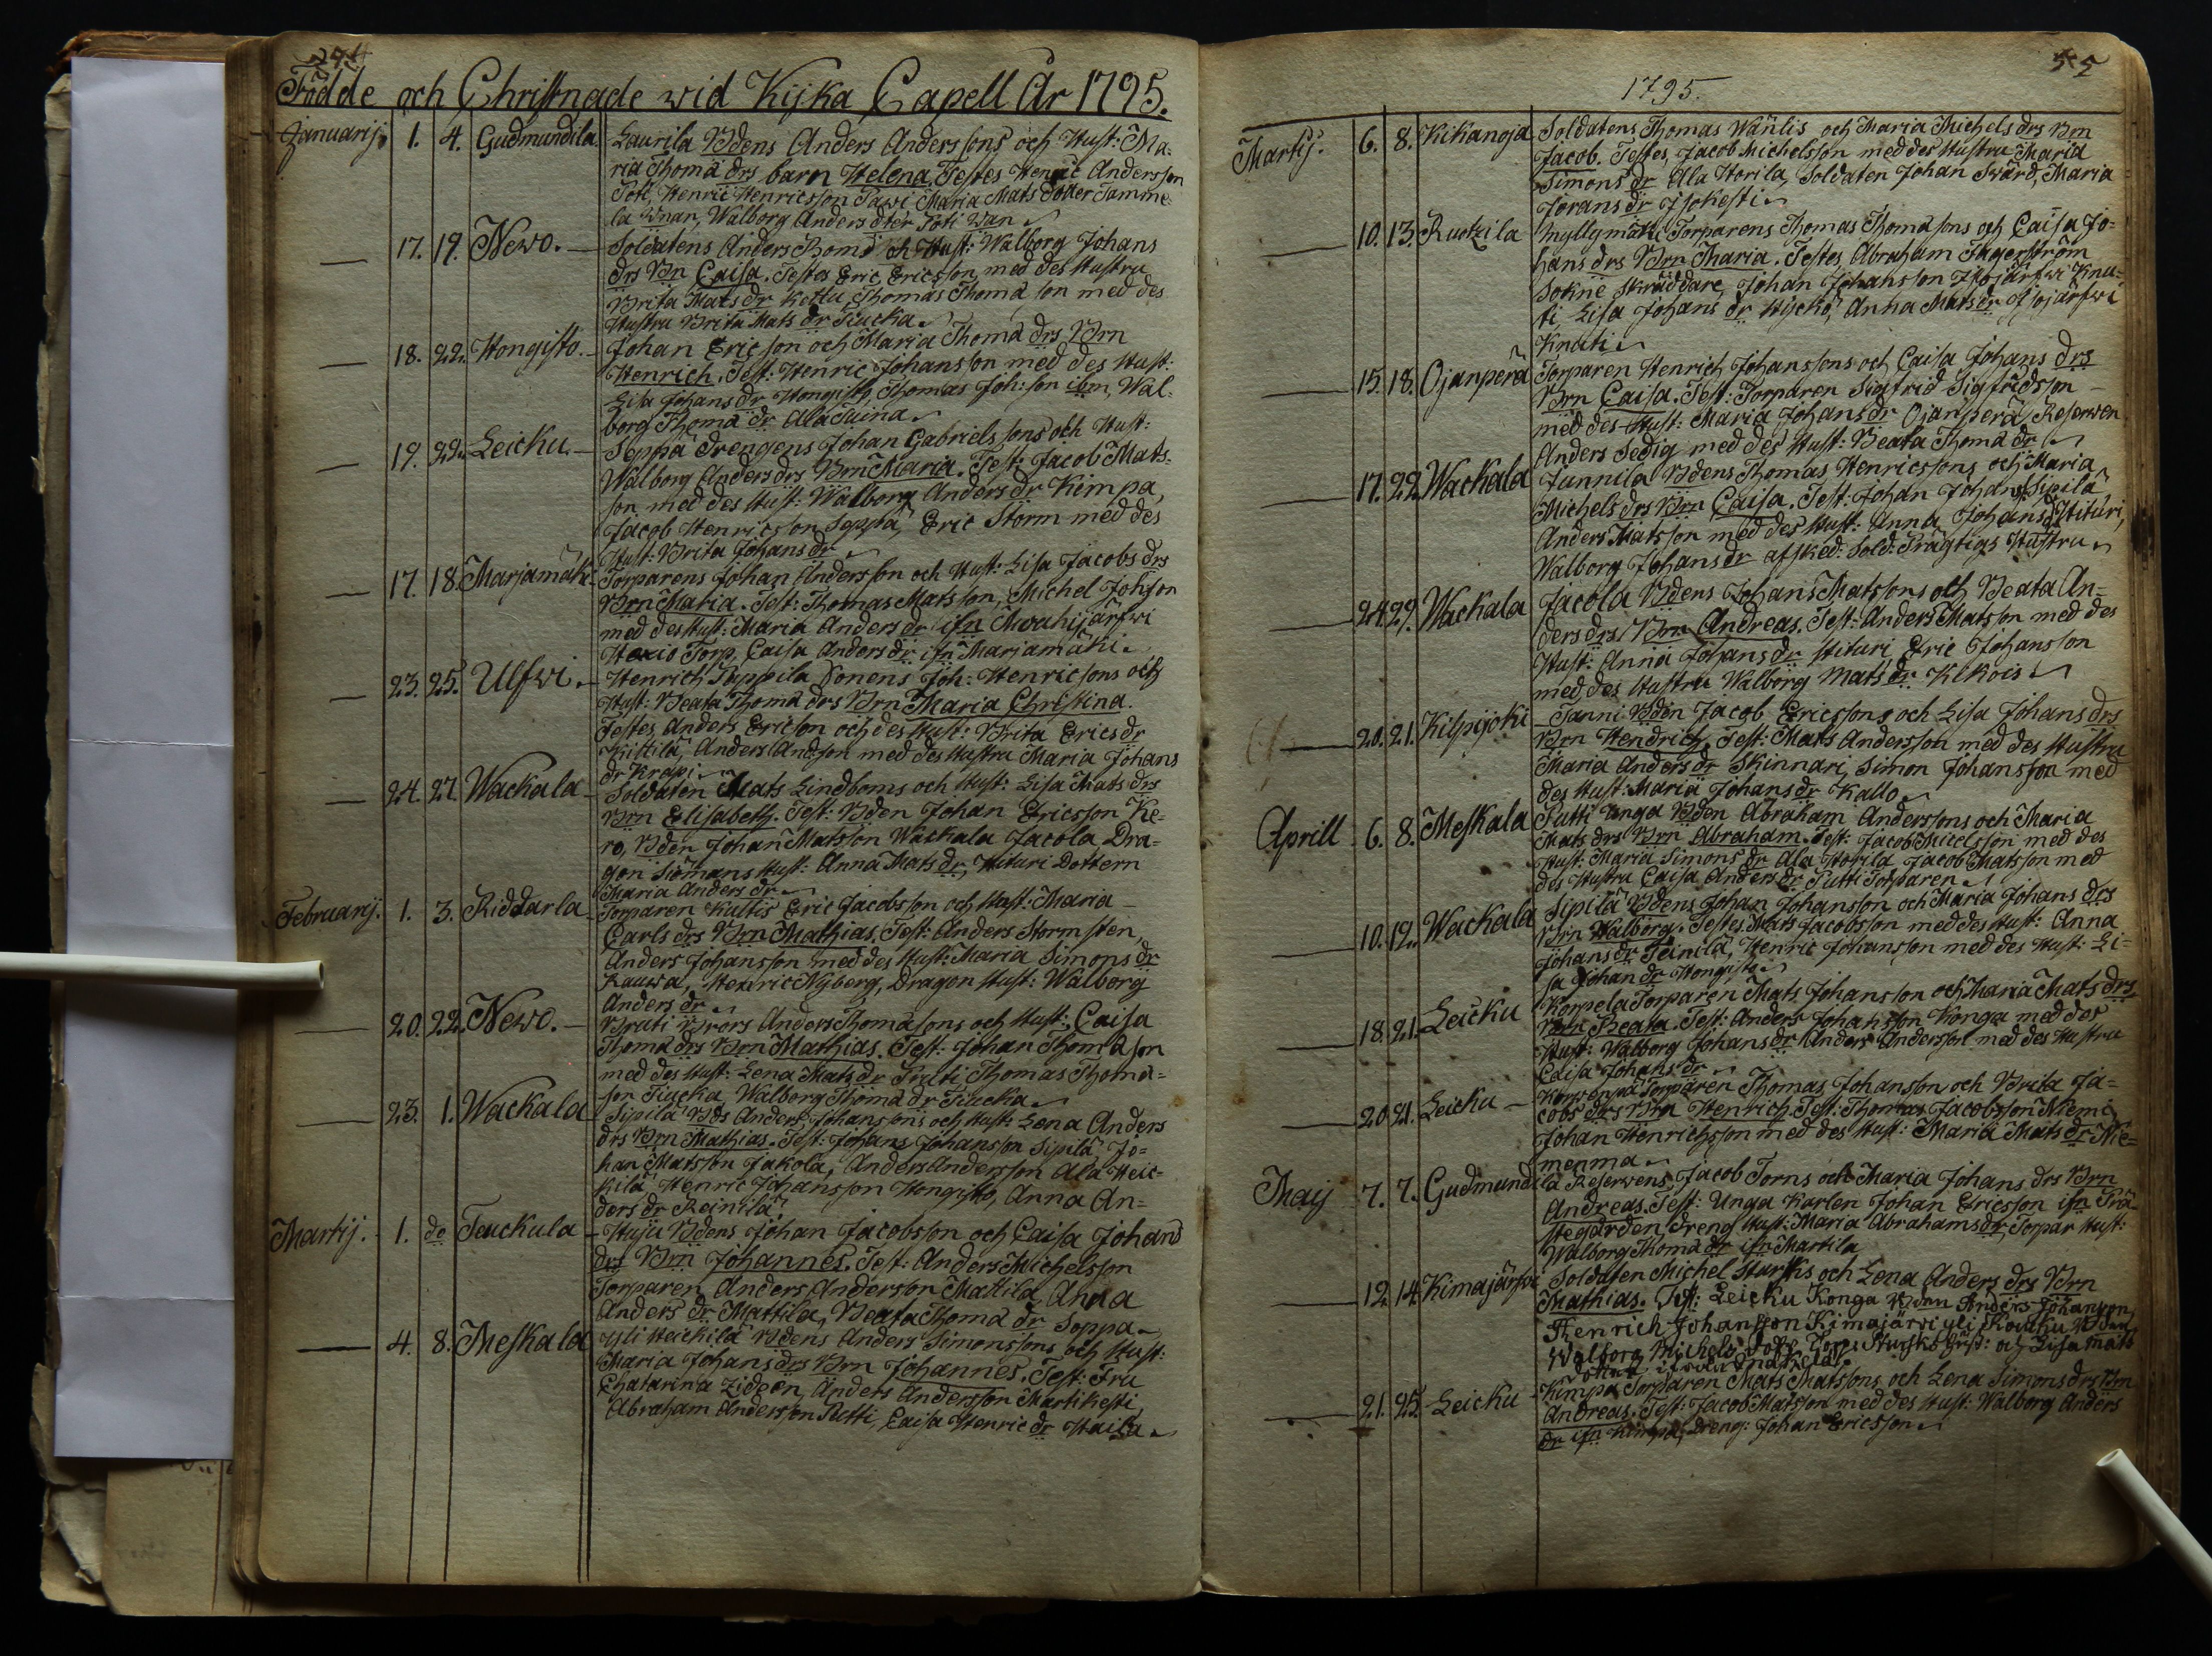 274
Födde och Christnade wid Kijka Capell År 1795.
Januarij. 1. 4. Gudmundila. Laurila Bdens Anders Anderssons och Hust: Ma-
ria Thomä drs barn Helena. Testes Henric Andersson
Poti, Henric Henricsson Pawi Maria Mats dotter Tamme-
la Unan, Walborg Anders dter Poti Wan
— 17. 19. Newo. — Soldatens Anders Thoms och Hust: Walborg Johans
drs Brn Caisa. Testes Eric Ericsson med des Hustru
Brita Mats dr Kettu, Thomas Thomä son med des
Hustru Brita Mats dr Tiucka.
— 18. 22. Hongisto. — Johan Ericson och Maria Thomä drs Brn
Henrich. Test: Henric Johansson med des Hust:
Lisa Johans dr Hongisto, Thomas Joh: son ibm, Wal-
borg Thomä dr Ala
— 19. 22. Leicku. — Seppä Drengens Johan Gabriels sons och Hust:
Walborg Anders drs Brn Maria. Test: Jacob Mats-
son med des Hust: Walborg Anders dr Kimpa,
Jacob Henricsson Seppä, Eric Storm med des
Hust: Brita Johans dr
— 17. 18. Marjamäki. Torparens Johan Andersson och Hust: Lisa Jacobs drs
Brn Maria. Test: Thomas Matsson, Michel Johson
med des Hust: Maria Anders dr ifn Mouhijärfwi
Torp. Caisa Anders dr ifn Marjamäki.
— 23. 25. Ulfwi. — Henrich Suppila Sonens Joh: Henricsons och
Hust: Beata Thomä drs Brn Maria Christina.
Testes Anders Ericson och des Hust: Brita Erics dr
Kistila, Anders Andson med des Hustru Maria Johans
dr Krapi.
— 24. 27. Wackala — Soldaten Mats Lindboms och Hust: Lisa Mats drs
Brn Elisabeth. Test: Bden Johan Ericsson Ke-
ro, Bden Johan Matsson Wackala Jacola, Dra-
gon Siömans Hust: Anna Mats dr, Hituri Dottern
Maria Anders dr
Februarij. 1. 3. Riddarla — Torparen Kultis Eric Jacobsson och Hust: Maria
Carls drs Brn Mathias. Test: Anders Stormsten,
Anders Johansson med des Hust: Maria Simons dr
Kauwa, Henric Nyberg, Dragon Hust: Walborg
Anders dr
— 20. 22. Newo. — Pruti Brors Anders Thomäsons och Hust: Caisa
Thomä drs Brn Mathias. Test: Johan Thomäson
med des Hust: Lena Mats dr Pruti Thomas Thomä-
son Tiucka, Walborg Thomä dr Tiucka
— 23. 1. Wackala — Sipilä Bds Anders Johansson's och Hust: Lena Anders
drs Brn Mathias. Test: Johans Johansson Sipilä Jo-
han Matsson Jakola, Anders Andersson Ala Heic-
kilä Henric Johansson Hongisto, Anna An-
ders dr Reinilä
Martij. 1. do Teuckula — Huju Bdens Johan Jacobsson och Caisa Johans
drs Brn Johannes. Test: Anders Michelsson
Torparen Anders Andersson Mattila Anna
Anders dr Mattila, Beata Thomä dr Soppa
— 4. 8. Meskala Yli Heickilä Bdens Anders Simonssons och Hust:
Maria Johans drs Brn Johannes. Test: Fru
Chatarina Zideèn, Anders Andersson Martikesti,
Abraham Andersson Putti, Caisa Henric dr Haila
55
1795.
Martij. 6. 8. Kikanoja Soldatens Thomas Wänlis och Maria Michels drs Brn
Jacob. Testes, Jacob Michelsson med des Hustru Maria
Simons dr Ala Horila, Soldaten Johan Swärd, Maria
Jörans dr Isokesti
— 10. 13. Ruotzila Myllymäki Torparens Thomas Thomäsons och Caisa Jo-
hans drs Brn Maria. Testes, Abraham Fagerström
Sokne Skräddare, Johan Johansson Knu-
ti, Lisa Johans dr Hyckö, Anna Mats dr
Knuti
— 15. 18. Ojanperä Torparen Henrich Johanssons och Caisa Johans drs
Brn Caisa. Test: Torparen Sigfrid Sigfridsson
med des Hust: Maria Johans dr Ojanperä, Reserwen
Anders Sedig med des Hust: Beata Thomä dr
— 17. 22. Wackala Junnila Bdens Thomas Henricssons och Maria
Michels drs Brn Caisa. Test: Johan Johans: Sipilä
Anders Matsson med des Hust: Anna Johans dr Hituri,
Walborg Johans dr afsked: Sold: Prägtigs Hustru
— 24. 29. Wackala Jacola Bdens Johans Matssons och Beata An-
ders drs Brn Andreas. Test: Anders Matsson med des
Hust: Anna Johans dr Hituri Eric Johansson
med des Hustru Walborg Mats dr Kikois
— 20. 21. Kilpijoki — Tanni Bden Jacob Ericssons och Lisa Johans drs
Brn Hendrich. Test: Mats Andersson med des Hustru
Maria Anders dr Skinnari, Simon Johansson med
des Hust: Maria Johans dr Kallo
Aprill 6. 8. Meskala Putti Unga Bden Abraham Anderssons och Maria
Mats drs Brn Abraham. Test: Jacob Micelsson med des
Hust: Maria Simons dr Ala Horila Jacob Matsson med
des Hustru Caisa Anders dr Putti Torparen
— 10. 12. Wackala Sipilä Bdens Johan Johansson och Maria Johans drs
Brn Walborg. Testes Mats Jacobsson med des Hust: Anna
Johans dr Teinilä, Henric Johansson med des Hust: Li-
sa Johan dr Hongisto
— 18. 21. Leicku Korpela Torparen Mats Johansson och Maria Mats drs
Brn Beata. Test: Anders Johansson Konga med des
Hust: Walborg Johans dr Anders Andersson med des Hustru
Caisa Johans dr
— 20. 21. Leicku — Korwenpä Torparen Thomas Johansson och Brita Ja-
cobs drs Brn Henrich. Test: Thomas Jacobsson Niemi,
Johan Henrichsson med des Hust: Maria Mats dr Nie-
menma
Maij 7. 7. Gudmundila Reserwens Jacob Torns och Maria Johans drs Brn
Andreas. Test: Unga Karlen Johan Ericsson ifn Prä-
stegården, Dreng Hust: Maria Abrahams dr, Torpar Hust:
Walborg Thomä dr ifn Martila
— 12. 14. Kimajärfwi Soldaten Michel Hurskis och Lena Anders drs Brn
Mathias. Test: Leicku Konga Anders Johansson,
Henrich Johansson Kimajärwi yli
Walborg Michels dott. Torp: Hust: och Lisa Mats
— 21. 25. Leicku — Kimpa Torparen Mats Matssons och Lena Simons drs Brn
Andreas. Test: Jacob Matsson med des Hust: Walborg Anders
dr ifn Kimpa, Dreng: Johan Ericsson